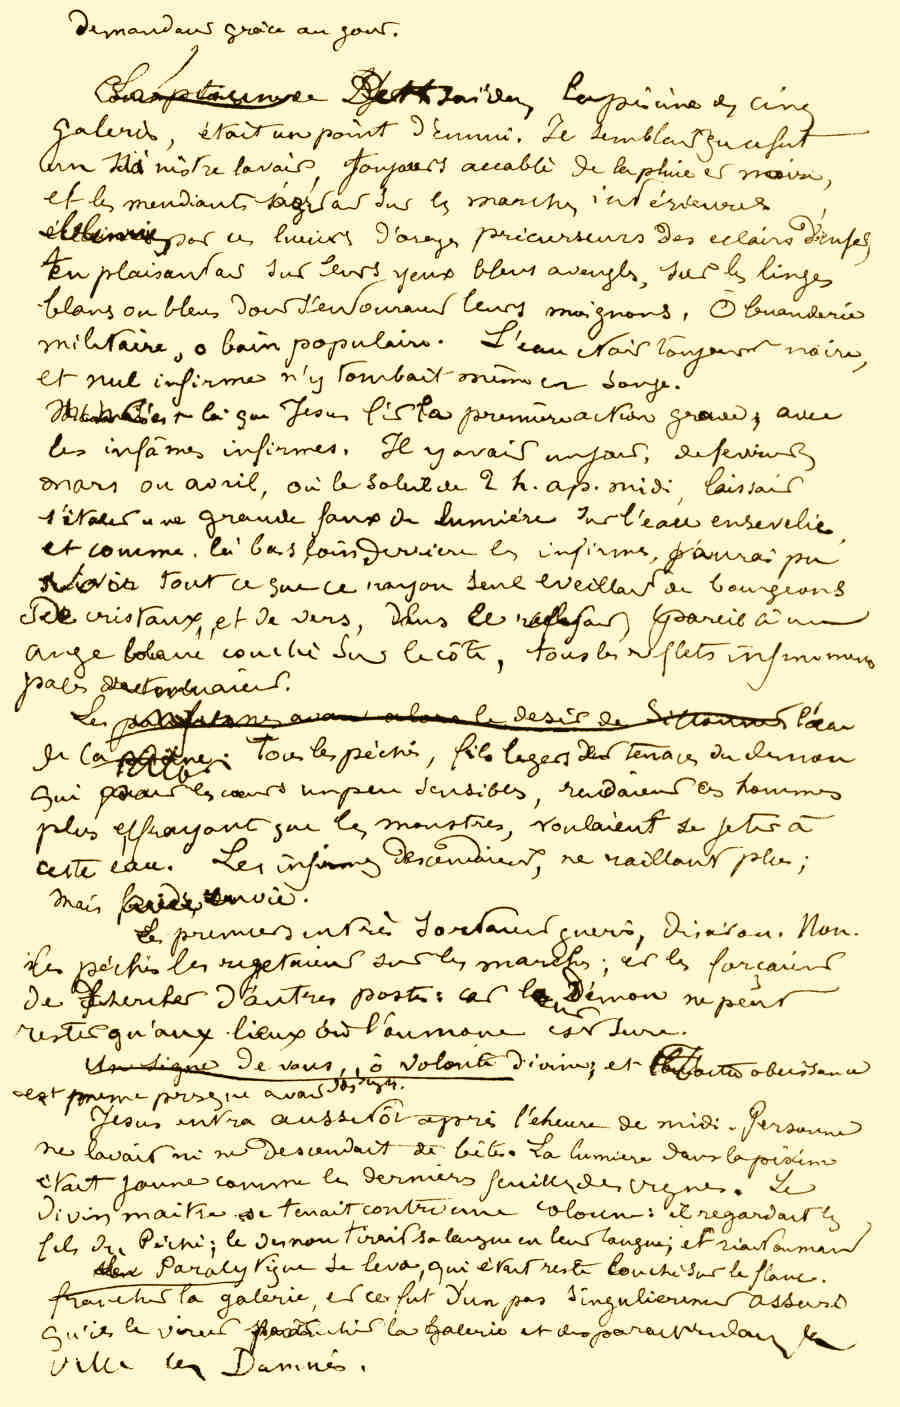 demandant grâce au jour.
Bethsaïda, la piscine des cinq
galeries, était un point d'ennui. Il semblait que ce fut
un sinistre lavoir, toujours accablé de la pluie et noir,
et les mendiants s'agitant sur les marches intérieures
par ces lueurs d'orages précurseurs des eclairs d'enfer,
en plaisantant sur leurs yeux bleus aveugles, sur les linges
blancs ou bleus dont s'entouraient leurs moignons. Ô buanderie
militaire, o bain populaire. L'eau etait toujours noire,
et nul infirme n'y tombait même en songe.
C'est là que Jésus fit la première action grave, avec
les infâmes infirmes. Il y avait un jour, de fevrier
mars ou avril, où le soleil de 2 h. ap. midi, laissait
s'étaler une grande faux de lumière sur l'eau ensevelie,
et comme, là bas, loin derrière les infirmes, j'aurai pu
voir tout ce que ce rayon seul eveillait de bourgeons
de cristaux, et de vers, dans ce reflet, pareil à un
ange blanc couché sur le côté, tous les reflets infiniment
pales remuaient.
Les avait alors le desir de sillonner l'eau
de la tous les péchés, fils legers et tenaces du demon
qui pour les cœurs un peu sensibles, rendaient ces hommes
plus effrayants que les monstres, voulaient se jeter à
cette eau. Les infirmes descendaient, ne raillant plus;
mais avec envie.
Les premiers entrés sortaient gueris, disait-on. Non.
Les péchés les rejetaient sur les marches; et les forçaient
de chercher d'autres postes: car leur Démon ne peut
rester qu'aux lieux où l'aumone est sure.
Un signe de vous, ô volonté divine, et toute obeissance
est presque avant vos
Jésus entra aussitôt après l'heure de midi. Personne
ne lavait ni ne descendait de bêtes. La lumiere dans la piscine
était jaune comme les dernières feuilles des vignes. Le
divin maître se tenait contre une colonne: il regardait les
fils du Péché; le demon tirait sa langue en leur langue; et riait
Paralytique se leva, qui était resté couché sur le flanc.
franchir la galerie, et ce fut d'un pas singulierement assuré
qu'ils le virent franchir la galerie et disparaitre dans la
ville les Damnés.